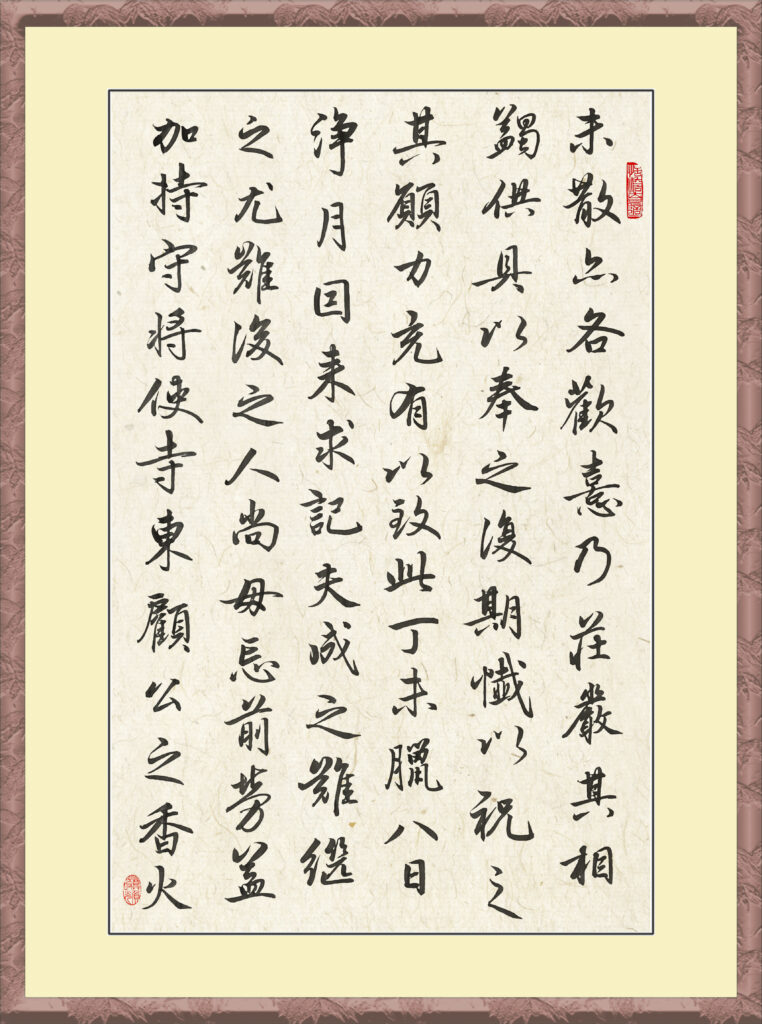 未散亦各歡憙乃莊嚴其相
蠲供具以奉之復期懺以祝之
其願力充有以致此丁未臘八日
淨月因来求記夫成之難繼
之尤難後之人尚毋忘前勞益
加持守将使寺東顧公之香火